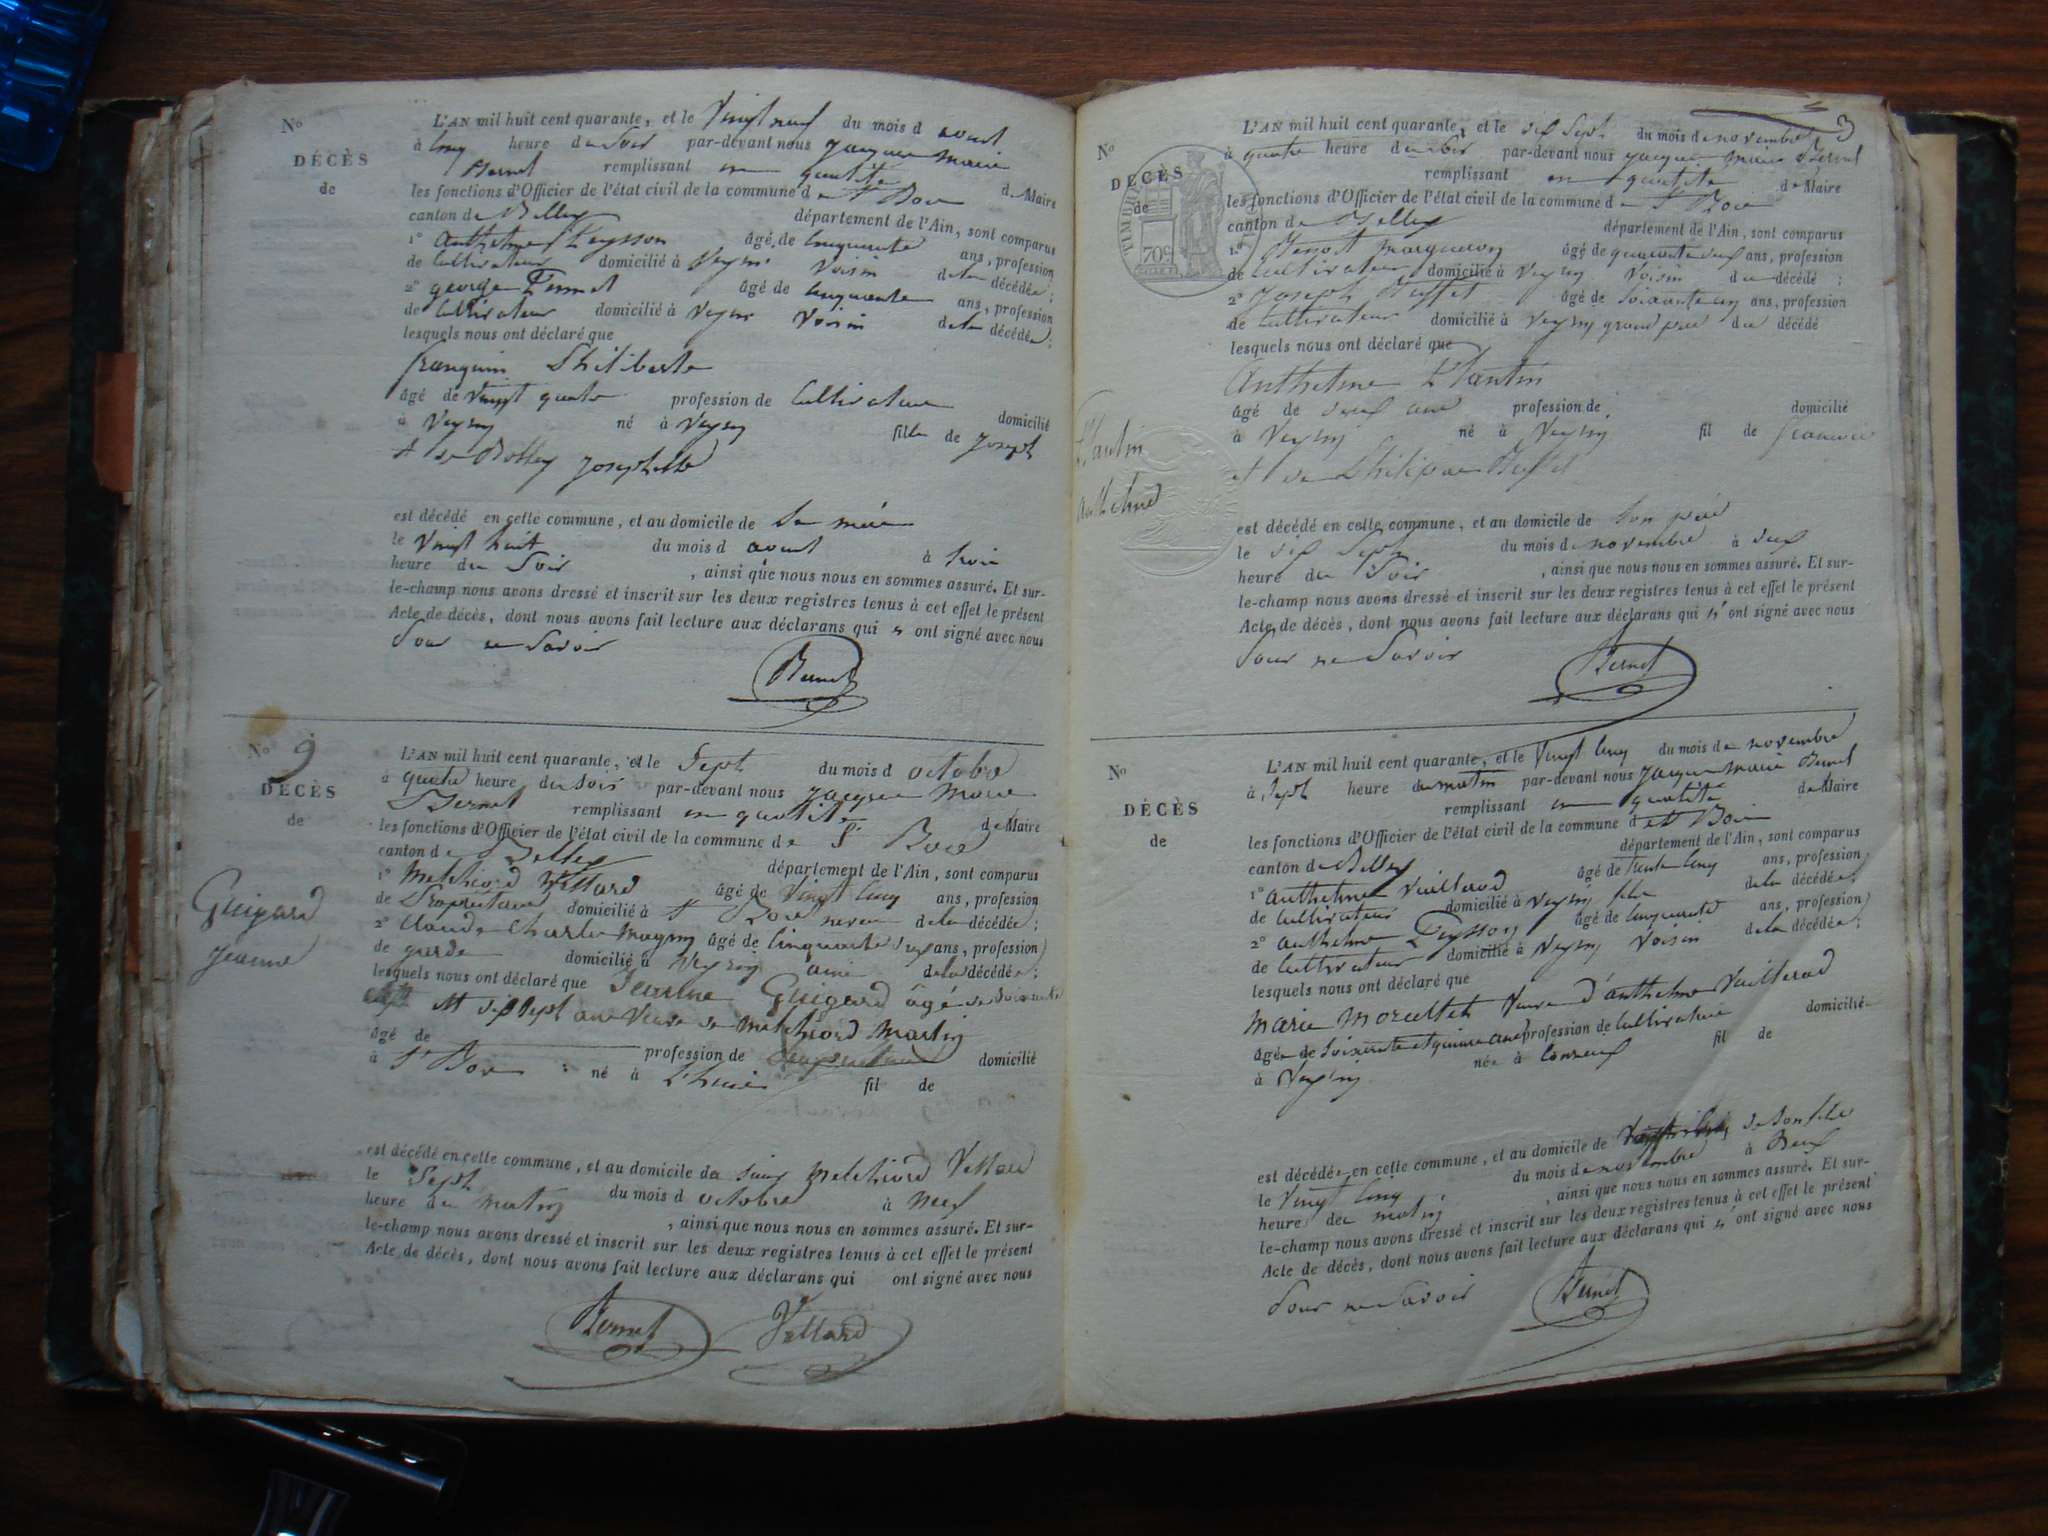 No
DÉCÈS
de
L'AN mil huit cent quarante, et le Vingt neuf du mois d aout
à cinq heure du Soir par-devant nous jacques Marie
Bernet remplissant en qualité de Maire
les fonctions d'Officier de l'état civil de la commune de St Bois
canton de Belley département de l'Ain, sont comparus
1° Anthelme Peysson âgé de cinquante ans, profession
de Cultivateur domicilié à Veyrin Voisin de la décédée;
2° george âgé de cinquante ans, profession
de Cultivateur domicilié à Veyrin Voisin de la décédée;
lesquels nous ont déclaré que
franquin Philiberte
âgé de Vingt quatre profession de Cultivateur domicilié
à Veyrin né à Veyrin fille de joseph
et de josephette
est décédé en cette commune, et au domicile de Sa mère
le Vingt huit du mois d aout à trois
heure du Soir, ainsi que nous nous en sommes assuré. Et sur-
le-champ nous avons dressé et inscrit sur les deux registres tenus à cet effet le présent
Acte de décès, dont nous avons fait lecture aux déclarans qui n ont signé avec nous
Pour ne Savoir
Bernet
No 9
DÉCÈS
de
Guigard
jeanne
L'AN mil huit cent quarante, et le Sept du mois d octobre
à quatre heure du Soir par-devant nous jacques Marie
Bernet remplissant en qualité de Maire
les fonctions d'Officier de l'état civil de la commune de St Bois
canton de Belley département de l'Ain, sont comparus
1° Melchiord Vettard âgé de Vingt cinq ans, profession
de Propriétaire domicilié à St Bois neveu de la décédée;
2° Claude Charles Magnin âgé de Cinquante ans, profession
de garde domicilié à Veyrin ami de la décédée;
lesquels nous ont déclaré que jeanne Guigard âgé de Soixante
et dix Sept ans Veuve de Melchiord Martin
âgé de profession de domicilié
à St Bois né à L'huis fil de
est décédé en cette commune, et au domicile du Sieur Melchiord Vettard
le Sept du mois d octobre à neuf
heure du matin, ainsi que nous nous en sommes assuré. Et sur-
le-champ nous avons dressé et inscrit sur les deux registres tenus à cet effet le présent
Acte de décès, dont nous avons fait lecture aux déclarans qui ont signé avec nous
Bernet Vettard
3
No
DÉCÈS
de
TIMBRE
70c
Plantin
anthelme
L'AN mil huit cent quarante, et le dix Sept du mois de novembre
à quatre heure du Soir par-devant nous jacques Marie Bernet
remplissant en qualité de Maire
les fonctions d'Officier de l'état civil de la commune de St Bois
canton de Belley département de l'Ain, sont comparus
1° Benoit Margueron âgé de quarante deux ans, profession
de Cultivateur domicilié à Veyrin Voisin du décédé;
2° Joseph Buffet âgé de Soixante cinq ans, profession
de Cultivateur domicilié à Veyrin grand père du décédé
lesquels nous ont déclaré que
Anthelme Plantin
âgé de deux ans profession de domicilié
à Veyrin né à Veyrin fil de francois
et de Buffet
est décédé en cette commune, et au domicile de Son père
le dix Sept du mois de novembre à deux
heure du Soir, ainsi que nous nous en sommes assuré. Et sur-
le-champ nous avons dressé et inscrit sur les deux registres tenus à cet effet le présent
Acte de décès, dont nous avons fait lecture aux déclarans qui n'ont signé avec nous
Pour ne Savoir
Bernet
No
DÉCÈS
de
L'AN mil huit cent quarante, et le Vingt cinq du mois de novembre
à Sept heure du matin par-devant nous jacques Marie Bernet
remplissant en qualité de Maire
les fonctions d'Officier de l'état civil de la commune d et Bois
canton de Belley département de l'Ain, sont comparus
1° Anthelme Vuillerod âgé de trente cinq ans, profession
de Cultivateur domicilié à Veyrin fils de la décédée;
2° Anthelme Peysson âgé de cinquante ans, profession
de Cultivateur domicilié à Veyrin Voisin de la décédée;
lesquels nous ont déclaré que
Marie Morellet Veuve d'anthelme Vuillerod
âgée de Soixante et quinze ans profession de Cultivatrice domicilié
à Veyrin née à Conzeux fil de
est décédée en cette commune, et au domicile de de Son fils
le Vingt cinq du mois de novembre à
heure du matin, ainsi que nous nous en sommes assuré. Et sur-
le-champ nous avons dressé et inscrit sur les deux registres tenus à cet effet le présent
Acte de décès, dont nous avons fait lecture aux déclarans qui n'ont signé avec nous
Pour ne Savoir
Bernet